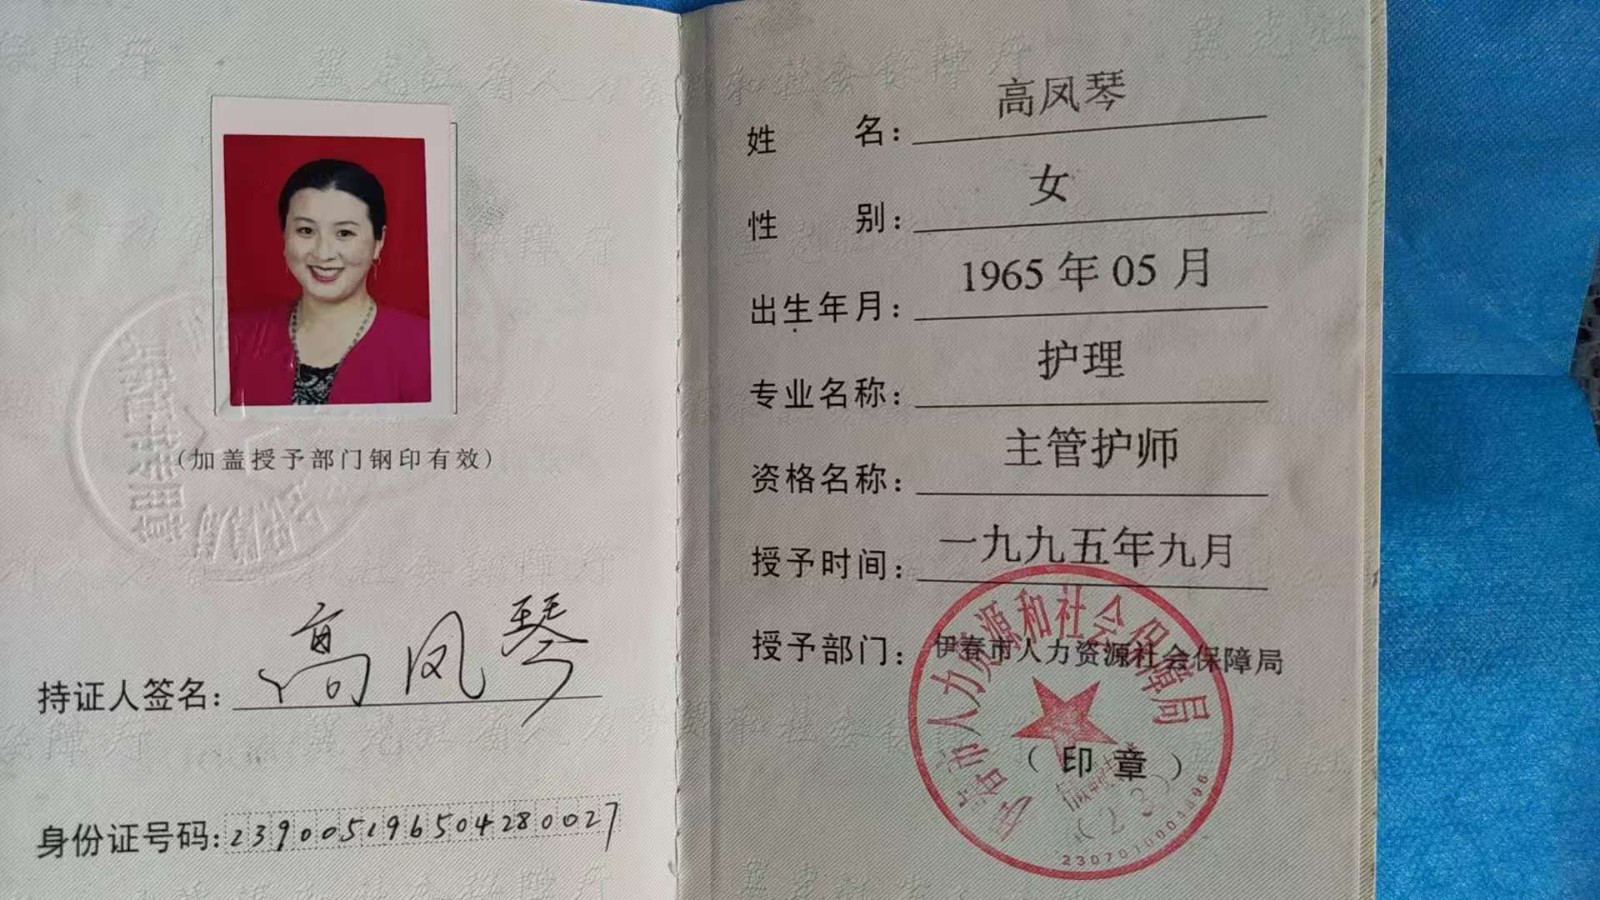 (加盖授予部门钢印有效)
持证人签名: 高凤琴
身份证号码: 239005196504280027
姓名: 高凤琴
性别: 女
出生年月: 1965年05月
专业名称: 护理
资格名称: 主管护师
授予时间: 一九九五年九月
授予部门: 伊春市人力资源社会保障局
伊春市人力资源和社会保障局
(印章)